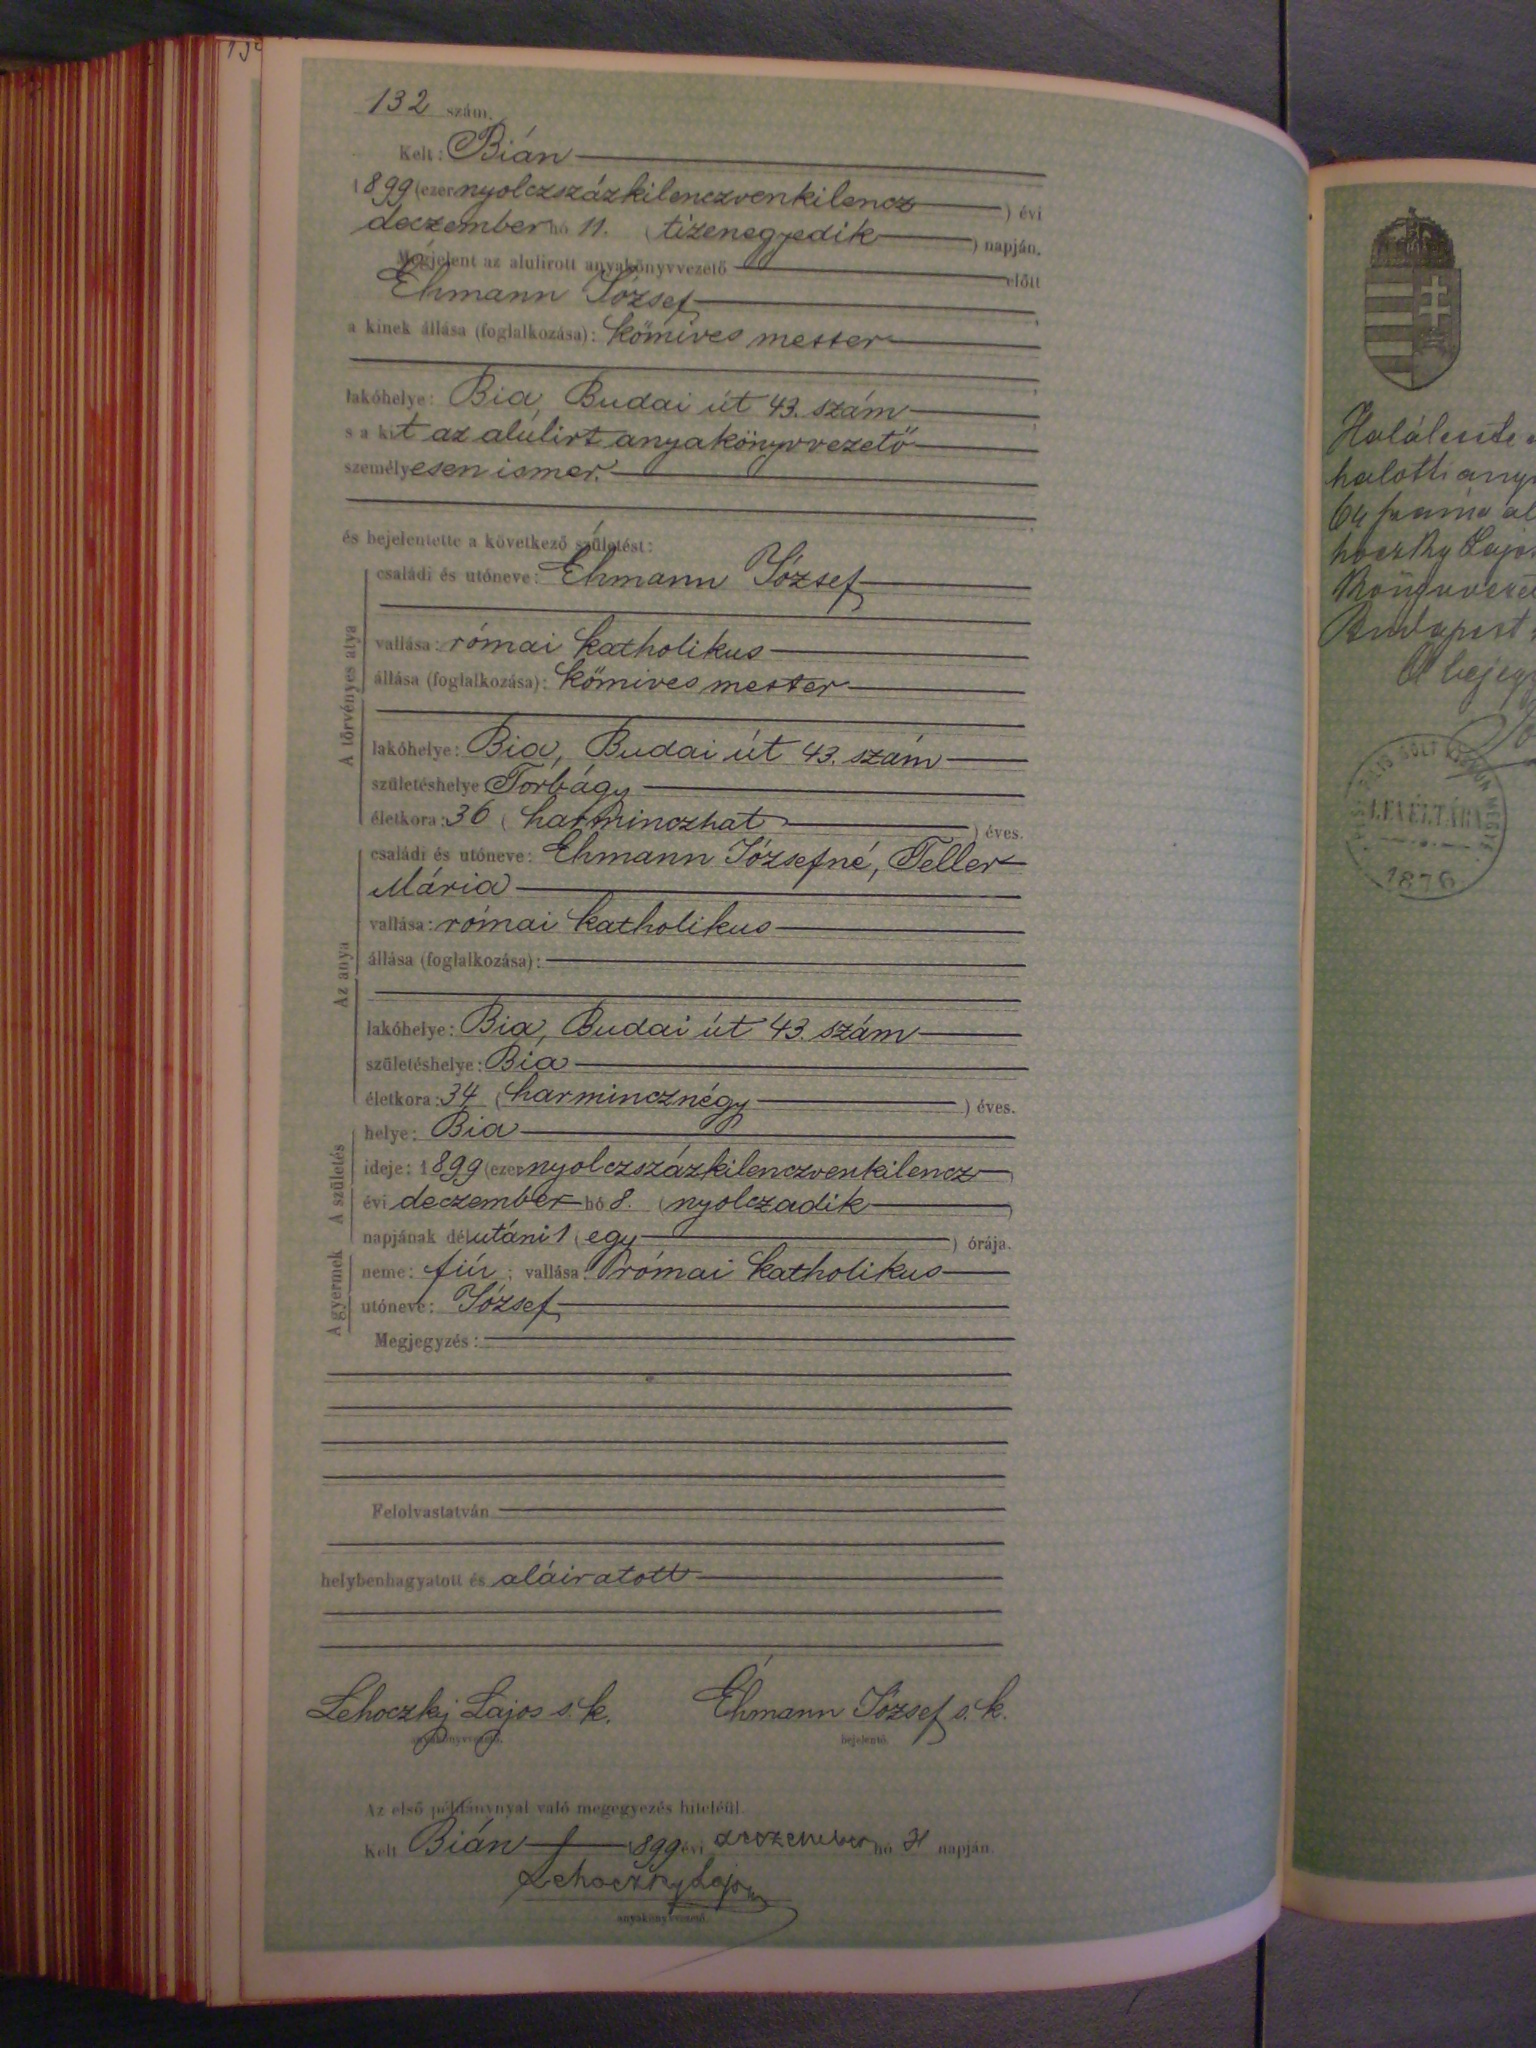 132 szám.
Kelt: Bián
1899 (ezernyolczszázkilenczvenkilencz) évi
deczember hó 11. (tizenegyedik) napján.
Megjelent az alulirott anyakönyvvezető előtt
Ehmann József,
a kinek állása (foglalkozása): kőmives mester
lakóhelye: Bia, Budai út 43. szám
s a kit az alulirt anyakönyvvezető
személyesen ismer.
és bejelentette a következő születést:
A törvényes atya
családi és utóneve: Ehmann József
vallása: római katholikus
állása (foglalkozása): kőmives mester
lakóhelye: Bia, Budai út 43. szám
születéshelye Torbágy
életkora: 36 (harminczhat) éves.
Az anya
családi és utóneve: Ehmann Józsefné, Teller
Mária
vallása: római katholikus
állása (foglalkozása):
lakóhelye: Bia, Budai út 43. szám
születéshelye: Bia
életkora: 34 (harmincznégy) éves.
A születés
helye: Bia
ideje: 1899 (ezernyolczszázkilenczvenkilencz)
évi deczember hó 8. (nyolczadik)
napjának délutáni 1 (egy) órája.
A gyermek
neme: fiú; vallása: római katholikus
utóneve: József
Megjegyzés:
Felolvastatván
helybenhagyatott és aláiratott
Lehoczky Lajos s. k. Ehmann József s. k.
anyakönyvvezető. bejelentő.
Az első példánynyal való megegyezés hiteléül.
Kelt Bián 1899 évi deczember hó 31 napján.
Lehoczky Lajos
anyakönyvvezető.
halotti
Budapest
A bejegy
LEVÉLTÁRA
1876